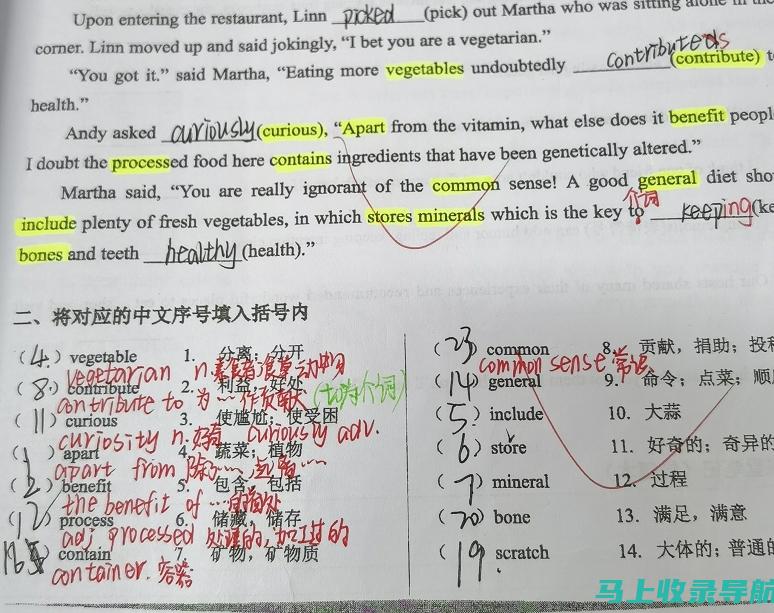 Upon entering the restaurant, Linn picked (pick) out Martha who was sitting alone in the
corner. Linn moved up and said jokingly, “I bet you are a vegetarian.”
“You got it.” said Martha, “Eating more vegetables undoubtedly contributeds (contribute) t
health.”
Andy asked curiously (curious), “Apart from the vitamin, what else does it benefit peopl
I doubt the processed food here contains ingredients that have been genetically altered.”
Martha said, “You are really ignorant of the common sense! A good general diet sho
介词
include plenty of fresh vegetables, in which stores minerals which is the key to keeping (ke
bones and teeth healthy (health).”
二、将对应的中文序号填入括号内
(4.) vegetable 1. 分离；分开 (23) common 8. 贡献，捐助；投稿
vegetarian n.素食者 common sense 常识
(8.) contribute 2. 利益，好处 (14) general 9. 命令；点菜；顺
contribute to 为…作贡献 (to为介词)
(11) curious 3. 使尴尬；使受困 (5.) include 10. 大蒜
curiosity n.好奇 curiously adv.
(1) apart 4. 蔬菜；植物 (6) store 11. 好奇的；奇异的
apart from 除了…
(2) benefit 5. 包含，包括 (7) mineral 12. 过程
the benefit of …的益处
(12) process 6. 储藏，储存 (20) bone 13. 满足，满意
adj processed 处理的，加工过的
contain 7. 矿物，矿物质 (19.) scratch 14. 大体的；普通的
container. 容器
马上收录导航